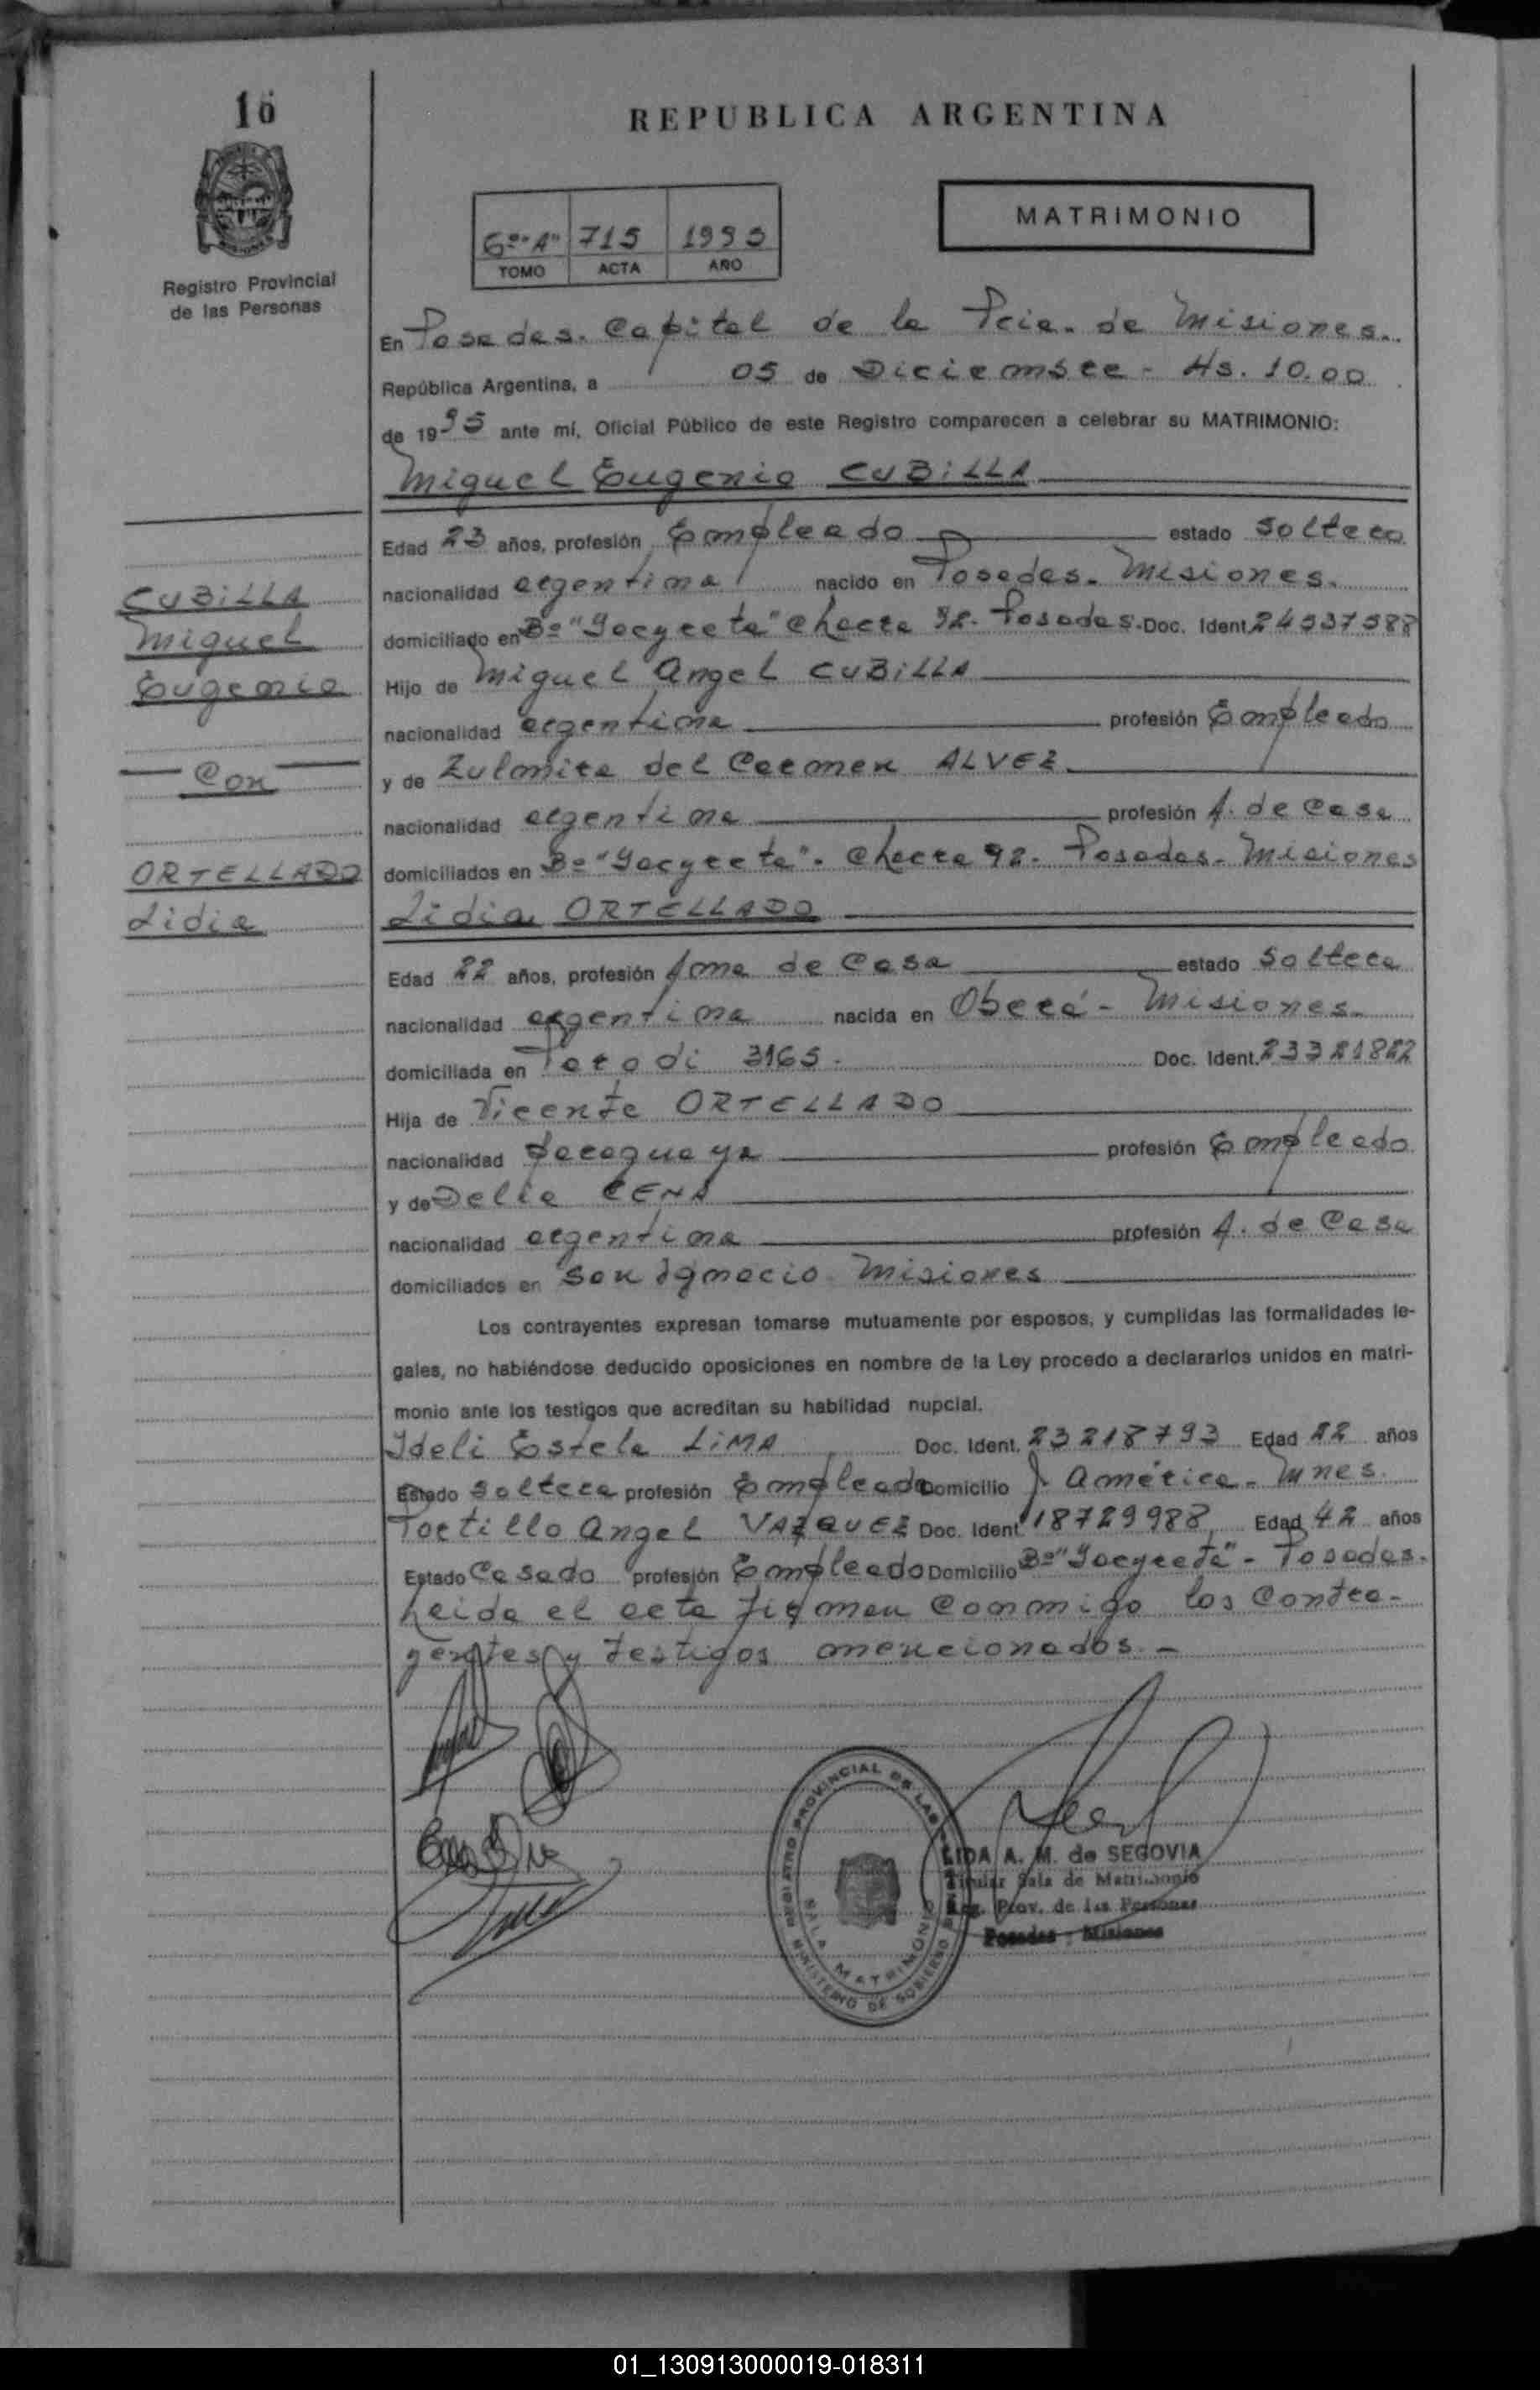 10
REPUBLICA ARGENTINA
MATRIMONIO
6º "A" 715 1995
TOMO ACTA AÑO
Registro Provincial
de las Personas
En Posadas. Capital de la Pcia. de Misiones..
República Argentina, a 05 de Diciembre - Hs. 10.00
de 1995 ante mí, Oficial Público de este Registro comparecen a celebrar su MATRIMONIO:
Miguel Eugenio CUBILLA
Edad 23 años, profesión Empleado estado Soltero
nacionalidad argentina nacido en Posadas. Misiones.
domiciliado en Bº "Yacyreta" Chacra 92. Posadas. Doc. Ident. 24537588
Hijo de Miguel Angel CUBILLA
nacionalidad argentina profesión Empleado
y de Zulmira del Carmen ALVEZ
nacionalidad argentina profesión A. de Casa
domiciliados en Bº "Yacyreta". Chacra 92. Posadas. Misiones
CUBILLA
Miguel
Eugenio
Con
ORTELLADO
Lidia
Lidia ORTELLADO
Edad 22 años, profesión Ama de Casa estado Soltera
nacionalidad argentina nacida en Oberá - Misiones.
domiciliada en 3165. Doc. Ident. 23321822
Hija de Vicente ORTELLADO
nacionalidad paraguaya profesión Empleado
y de Delia CENA
nacionalidad argentina profesión A. de Casa
domiciliados en San Ignacio Misiones
Los contrayentes expresan tomarse mutuamente por esposos, y cumplidas las formalidades le-
gales, no habiéndose deducido oposiciones en nombre de la Ley procedo a declararlos unidos en matri-
monio ante los testigos que acreditan su habilidad nupcial.
Ydeli Estela LIMA Doc. Ident. 23218793 Edad 22 años
Estado Soltera profesión Empleada Domicilio J. América - Mnes.
Portillo Angel VAZQUEZ Doc. Ident. 18729988 Edad 42 años
Estado Casado profesión Empleado Domicilio Bº "Yacyreta" - Posadas.
Leida el acta firman conmigo los contra-
yentes y testigos mencionados. -
REGISTRO PROVINCIAL DE LAS
SALA MATRIMONIO
MINISTERIO DE GOBIERNO
LIDA A. M. de SEGOVIA
Titular Sala de Matrimonio
Reg. Prov. de las Personas
Posadas - Misiones
01_130913000019-018311